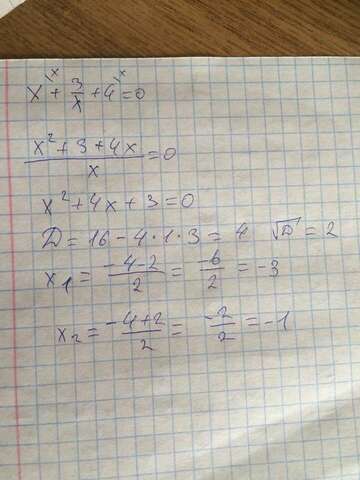 x^{\x} + 3/x + 4^{\x} = 0
(x² + 3 + 4x)/x = 0
x² + 4x + 3 = 0
D = 16 - 4·1·3 = 4 √D = 2
x₁ = (-4-2)/2 = -6/2 = -3
x₂ = (-4+2)/2 = -2/2 = -1